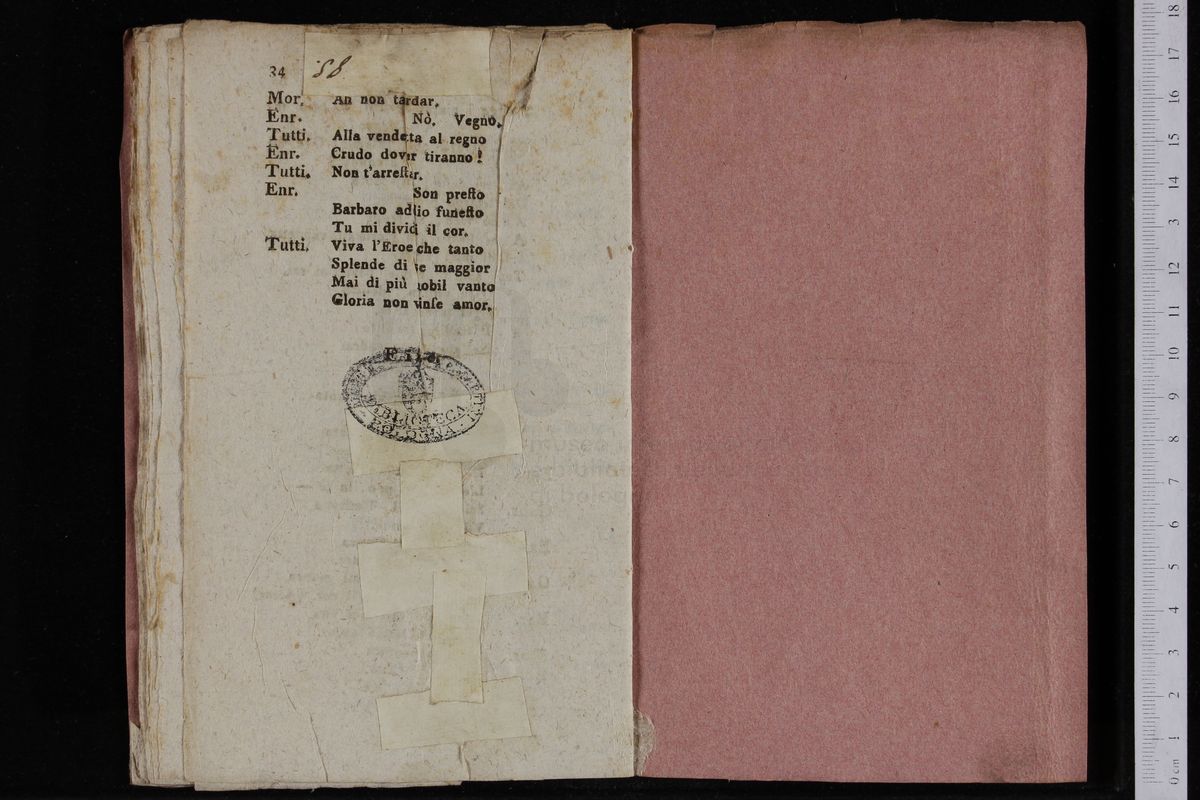 34 58
Mor. Ah non tardar.
Enr. Nò. Vegno.
Tutti. Alla vendetta al regno
Enr. Crudo dover tiranno!
Tutti. Non t'arreſtar.
Enr. Son preſto
Barbaro addio funeſto
Tu mi dividi il cor.
Tutti. Viva l'Eroe che tanto
Splende di se maggior
Mai di più nobil vanto
Gloria non vinſe amor.
Fine
BIBLIOTECA
BOLOGNA
0 cm 1 2 3 4 5 6 7 8 9 10 11 12 13 14 15 16 17 18